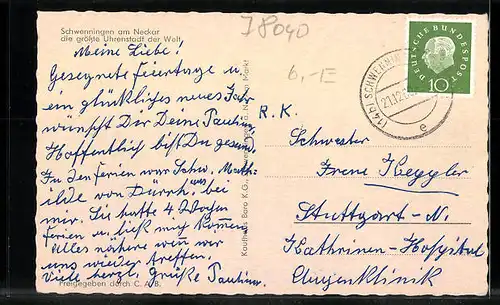 J8040
6,-E
Schwenningen am Neckar
die größte Uhrenstadt der Welt
Meine Liebe!
Gesegnete Feiertage u.
ein glückliches neues Jahr
wünscht Dir Deine Paulin
Hoffentlich bist Du gesund,
In den Ferien war Schw. Math-
ilde von Dürrh. bei
mir. Sie hatte 4 Wochen
Ferien u. ließ mich kommen
Alles nähere wenn wir
uns wieder treffen.
Viele herzl. Grüße Paulin
Freigegeben durch C. A. B.
Kaufhaus Baro K.G., Schwenningen a. N. am Markt
DEUTSCHE BUNDESPOST
10
(14b) SCHWENN
21.12
e
R. K.
Schwester
Irene Keggler
Stuttgart-N.
Kathrinen-Hospital
Augenklinik